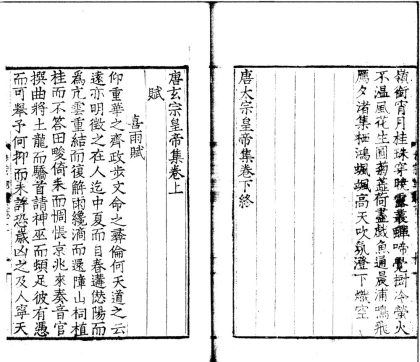 嶺銜宵月桂珠穿曉露叢蟬啼覺樹冷螢火
不溫風花生圓菊蘂荷盡戲魚通晨浦鳴飛
鴈夕渚集栖鴻颯颯高天吹氛澄下熾空
唐太宗皇帝集卷下終
唐玄宗皇帝集卷上
賦
喜雨賦
仰重華之齊政步文命之彝倫何天道之云
遠亦明徵之在人迄中夏而自春遘愆陽而
爲亢雲重結而復解雨纔滴而還障山祠植
桂而不答田畯倚耒而惆悵京兆來奏音官
撰曲將土龍而驕首請神巫而頓足彼有憑
而可舉予何抑而未許恐歲凶之及人寧天